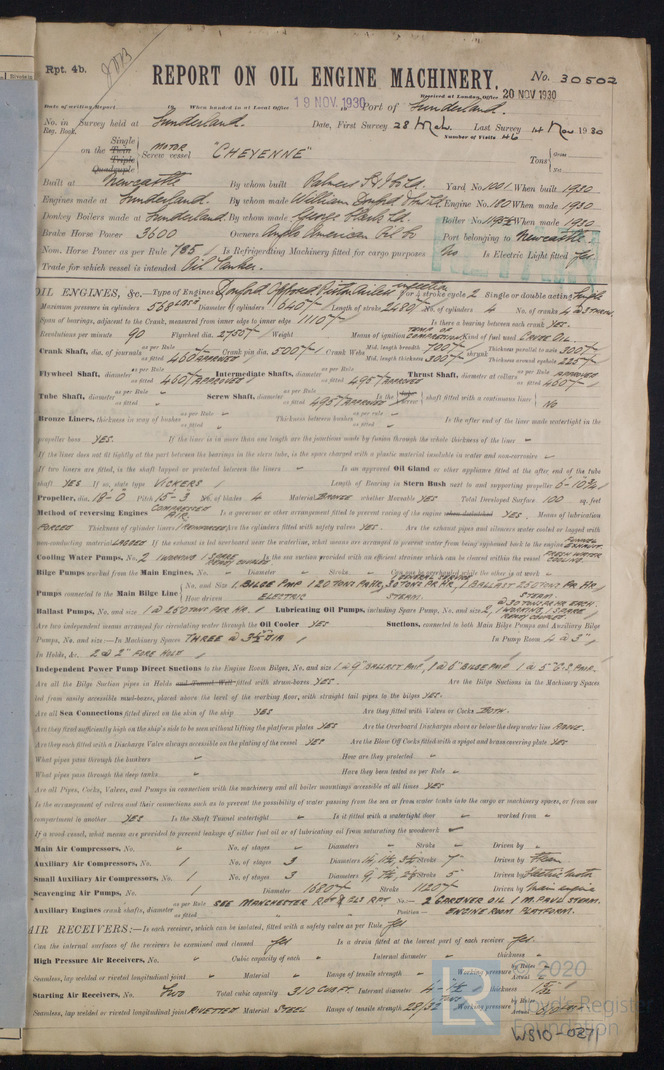 Rpt. 4b.
REPORT ON OIL ENGINE MACHINERY.
No. 30502
Received at London Office 20 NOV 1930
Date of writing Report 19 When handed in at Local Office 19 NOV. 1930 Port of Sunderland.
No. in Reg. Book. Survey held at Sunderland. Date, First Survey 28 Mch. Last Survey 14 Nov 1930
Number of Visits 46
on the Single Twin Triple Quadruple Screw vessel MOTOR "CHEYENNE" Tons Gross
Built at Newcastle By whom built Palmers Yard No. 1001. When built 1930.
Engines made at Sunderland. By whom made William Doxford & Sons Ld. Engine No. When made 1930
Donkey Boilers made at Sunderland By whom made George Clark Ld. Boiler No. When made 1930
Brake Horse Power 3600 Owners Anglo American Oil Co Port belonging to Newcastle.
Nom. Horse Power as per Rule 785 Is Refrigerating Machinery fitted for cargo purposes No Is Electric Light fitted Yes.
Trade for which vessel is intended Oil Tanker.
OIL ENGINES, &c.—Type of Engines Doxford Opposed Piston Airless injection 2 or 4 stroke cycle 2 Single or double acting Single
Maximum pressure in cylinders 568 Diameter of cylinders 640 Length of stroke 2480 No. of cylinders 4 No. of cranks
Span of bearings, adjacent to the Crank, measured from inner edge to inner edge 1110 Is there a bearing between each crank YES.
Revolutions per minute 90 Flywheel dia. 2750 Weight Means of ignition TEMP OF COMPRESSION Kind of fuel used CRUDE OIL
Crank Shaft, dia. of journals as per Rule as fitted 460 APPROVED Crank pin dia. 500 Crank Webs Mid. length breadth 700 Mid. length thickness 300 shrunk Thickness parallel to axis 300 Thickness around eyehole 225
Flywheel Shaft, diameter as per Rule as fitted 460 APPROVED Intermediate Shafts, diameter as per Rule as fitted 495 APPROVED Thrust Shaft, diameter at collars as per Rule as fitted APPROVED 460
Tube Shaft, diameter as per Rule as fitted Screw Shaft, diameter as per Rule as fitted 495 APPROVED Is the tube screw shaft fitted with a continuous liner NO
Bronze Liners, thickness in way of bushes as per Rule as fitted Thickness between bushes as per rule as fitted Is the after end of the liner made watertight in the
propeller boss YES. If the liner is in more than one length are the junctions made by fusion through the whole thickness of the liner
If the liner does not fit tightly at the part between the bearings in the stern tube, is the space charged with a plastic material insoluble in water and non-corrosive
If two liners are fitted, is the shaft lapped or protected between the liners Is an approved Oil Gland or other appliance fitted at the after end of the tube
shaft YES If so, state type VICKERS Length of Bearing in Stern Bush next to and supporting propeller
Propeller, dia. 18-0 Pitch 15-3 No. of blades 4 Material BRONZE whether Moveable YES Total Developed Surface 100 sq. feet
Method of reversing Engines COMPRESSED AIR Is a governor or other arrangement fitted to prevent racing of the engine when declutched YES. Means of lubrication
FORCED Thickness of cylinder liners Are the cylinders fitted with safety valves YES. Are the exhaust pipes and silencers water cooled or lagged with
non-conducting material LAGGED If the exhaust is led overboard near the waterline, what means are arranged to prevent water being syphoned back to the engine FUNNEL EXHAUST.
Cooling Water Pumps, No. 2 1 WORKING 1 SPARE Is the sea suction provided with an efficient strainer which can be cleared within the vessel FRESH WATER COOLING.
Bilge Pumps worked from the Main Engines, No. Diameter Stroke Can one be overhauled while the other is at work
Pumps connected to the Main Bilge Line No. and Size 1 BILGE PMP 120 TONS PR HR, 1 GENERAL SERVICE 30 TONS PR HR, 1 BALLAST 250 TONS PR HR,
How driven ELECTRIC STEAM. STEAM.
Ballast Pumps, No. and size 1 @ 250 TONS PER HR. Lubricating Oil Pumps, including Spare Pump, No. and size 2, @ 30 TONS PR HR EACH. 1 WORKING, 1 SPARE
Are two independent means arranged for circulating water through the Oil Cooler YES Suctions, connected to both Main Bilge Pumps and Auxiliary Bilge
Pumps, No. and size:—In Machinery Spaces THREE @ 3½" DIA In Pump Room 4 @ 3"
In Holds, &c. 2 @ 2" FORE HOLD
Independent Power Pump Direct Suctions to the Engine Room Bilges, No. and size 1 @ 9" BALLAST PMP, 1 @ 6" BILGE PMP 1 @ 5" G.S. PMP.
Are all the Bilge Suction pipes in Holds and Tunnel Well fitted with strum-boxes YES. Are the Bilge Suctions in the Machinery Spaces
led from easily accessible mud-boxes, placed above the level of the working floor, with straight tail pipes to the bilges YES.
Are all Sea Connections fitted direct on the skin of the ship YES Are they fitted with Valves or Cocks BOTH.
Are they fixed sufficiently high on the ship's side to be seen without lifting the platform plates YES Are the Overboard Discharges above or below the deep water line ABOVE.
Are they each fitted with a Discharge Valve always accessible on the plating of the vessel YES Are the Blow Off Cocks fitted with a spigot and brass covering plate YES
What pipes pass through the bunkers How are they protected
What pipes pass through the deep tanks Have they been tested as per Rule
Are all Pipes, Cocks, Valves, and Pumps in connection with the machinery and all boiler mountings accessible at all times YES
Is the arrangement of valves and their connections such as to prevent the possibility of water passing from the sea or from water tanks into the cargo or machinery spaces, or from one
compartment to another YES Is the Shaft Tunnel watertight Is it fitted with a watertight door worked from
If a wood vessel, what means are provided to prevent leakage of either fuel oil or of lubricating oil from saturating the woodwork
Main Air Compressors, No. No. of stages Diameters Stroke Driven by
Auxiliary Air Compressors, No. 1 No. of stages 3 Diameters Stroke 7" Driven by Steam
Small Auxiliary Air Compressors, No. 1 No. of stages 3 Diameters Stroke 5" Driven by Electric motor
Scavenging Air Pumps, No. 1 Diameter 1680 Stroke 1120 Driven by Main engine
Auxiliary Engines crank shafts, diameter as per Rule as fitted SEE MANCHESTER RPT No. 2 GARDNER OIL 1 M. PAUL STEAM.
Position ENGINE ROOM PLATFORM.
AIR RECEIVERS:—Is each receiver, which can be isolated, fitted with a safety valve as per Rule Yes
Can the internal surfaces of the receivers be examined and cleaned Yes Is a drain fitted at the lowest part of each receiver Yes.
High Pressure Air Receivers, No. Cubic capacity of each Internal diameter thickness
Seamless, lap welded or riveted longitudinal joint Material Range of tensile strength Working pressure by Rules Actual
Starting Air Receivers, No. Two Total cubic capacity 310 CUB FT. Internal diameter thickness
Seamless, lap welded or riveted longitudinal joint RIVETTED Material STEEL Range of tensile strength 28/32 Working pressure by Rules Actual
© 2020
Lloyd's Register
Foundation
WS10-0271